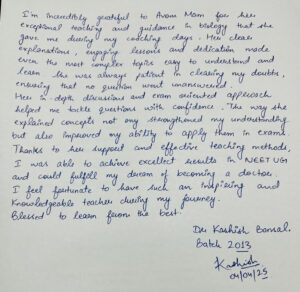 I'm incredibly grateful to Avani Mam for her
exceptional teaching and guidance in biology that she
gave me during my coaching days. Her clear
explanations, engaging lessons and dedication made
even the most complex topics easy to understand and
learn. She was always patient in clearing my doubts,
ensuring that no question went unanswered.
Her in-depth discussions and exam oriented approach
helped me tackle questions with confidence. The way she
explained concepts not only strengthened my understanding
but also improved my ability to apply them in exams.
Thanks to her support and effective teaching methods,
I was able to achieve excellent results in NEET UG
and could fulfill my dream of becoming a doctor.
I feel fortunate to have such an inspiring and
Knowledgeable teacher during my journey.
Blessed to learn from the best.
Dr Kashish Bansal
Batch 2013
Kashish
04/04/25